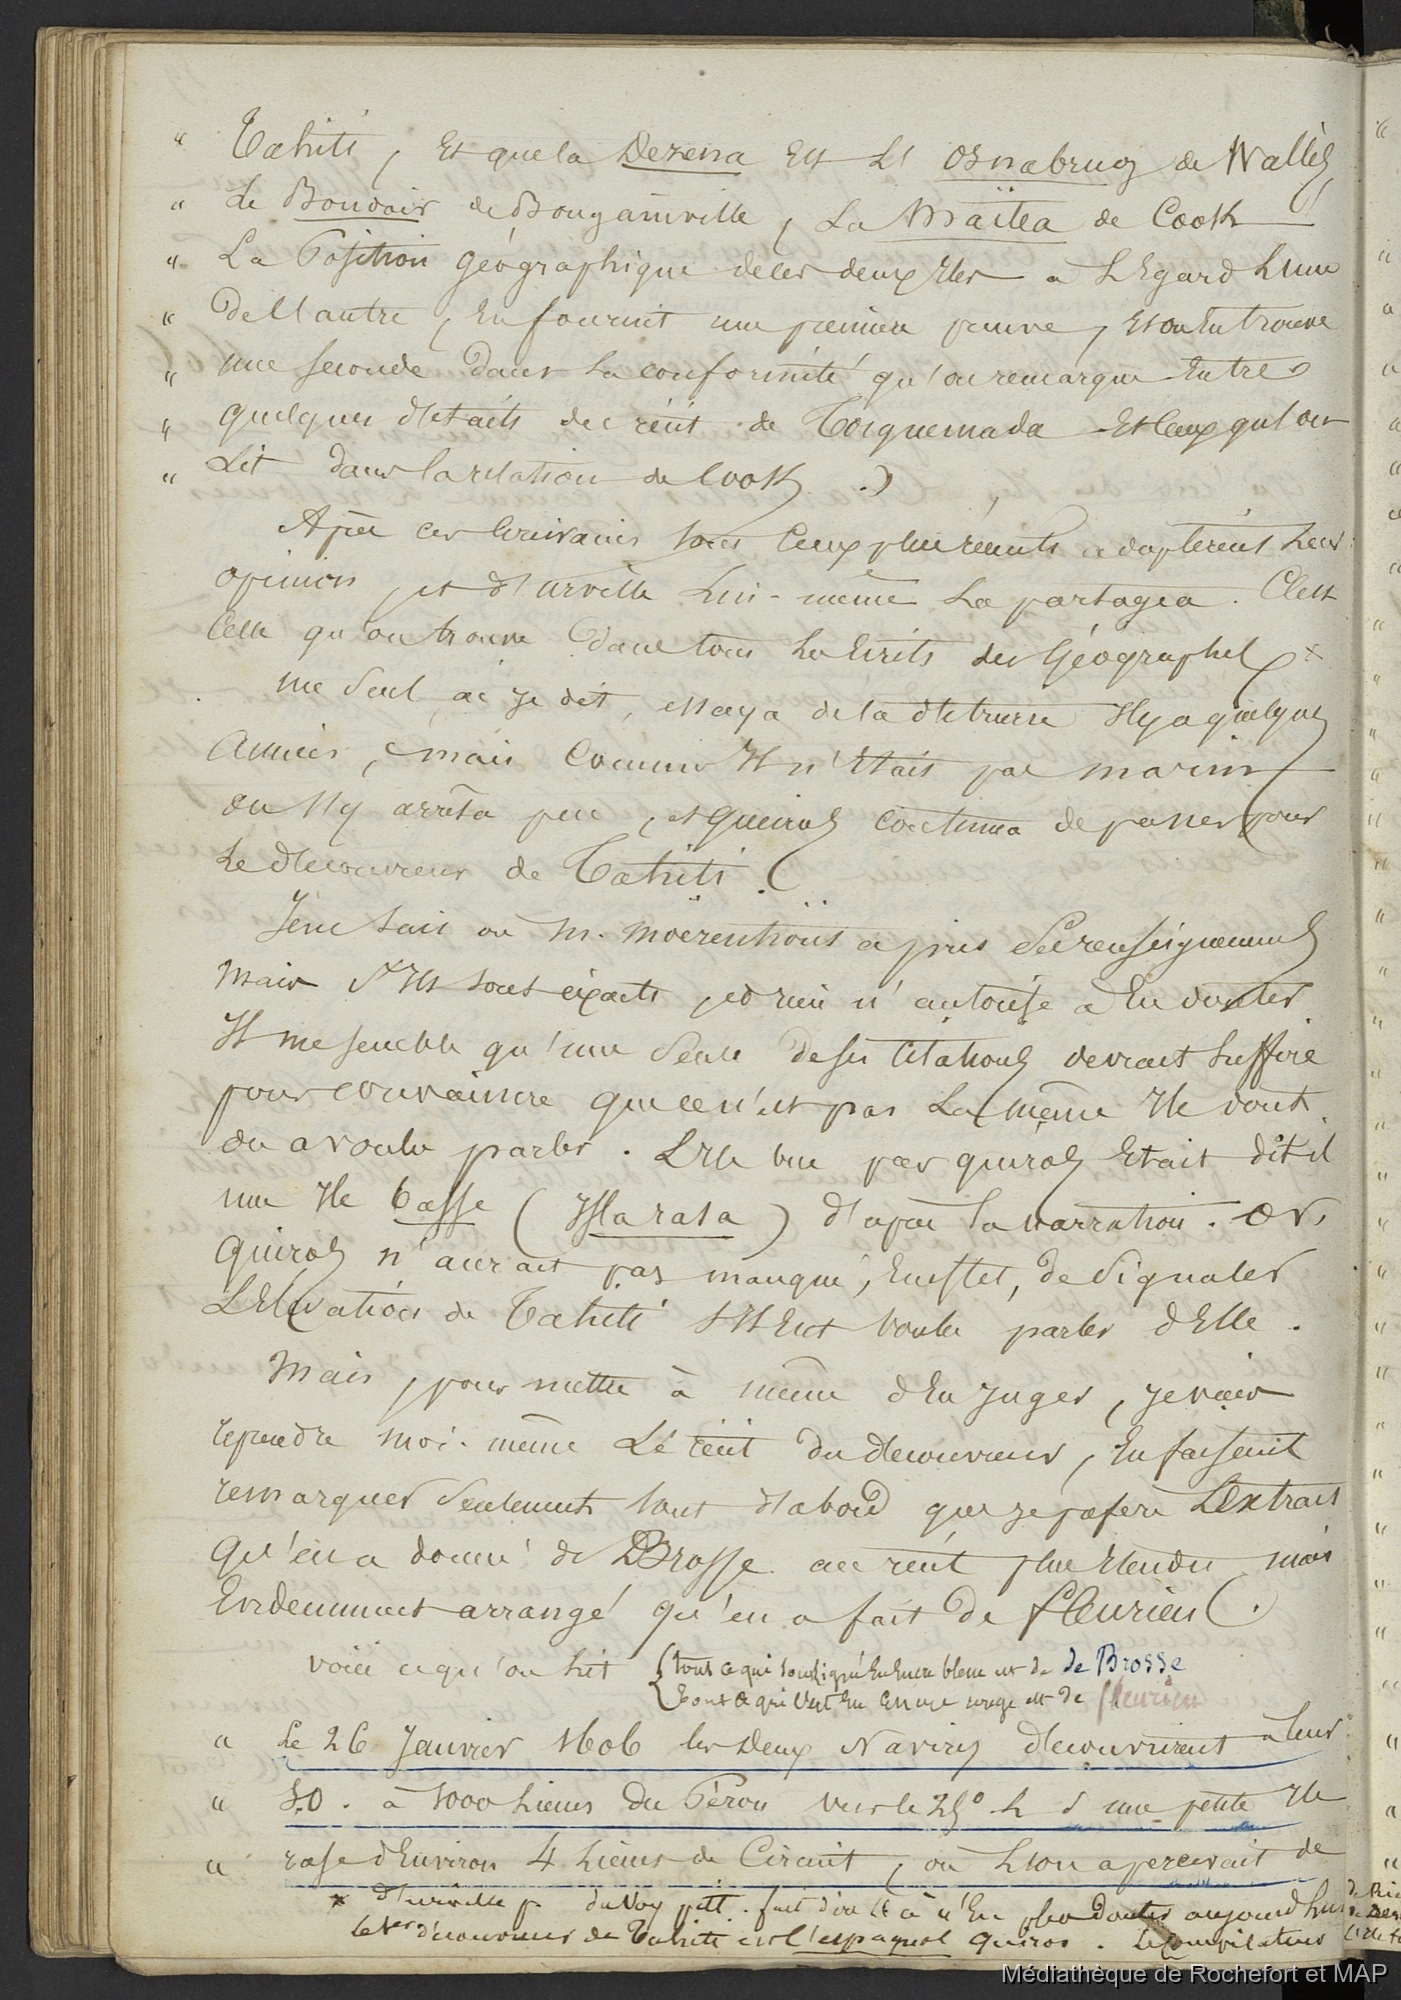 " Tahiti, et que la Dezena est l' Osnabrug de Wallis
" Le Boudoir de Bougainville, La Maïtea de Cook
" La Position géographique de ces deux Iles a l'Egard l'une
" De l'autre, en fournit une première preuve, et on en trouve
" une seconde dans la conformité qu'on remarque entre
" quelques détails du récit de Torquemada et ceux qu'on
" Lit dans la relation de Cook .)
Après ces Ecrivains tous ceux plus récents adoptèrent leur
opinion, et d'urville lui-même la partagea. C'est
celle qu'on trouve dans tous les Ecrits des Géographes x
un seul, ai je dit, essaya de la détruire Il y a quelques
années, mais comme Il n'était pas marin
on s'y arrêta peu, et Quiros continua de passer pour
Le découvreur de Tahiti.
Je ne sais où M. Moërenhoüt a pris ses renseignemens
mais s'Ils sont éxacts, et rien n'autorise a En douter
Il me semble qu'une seule de ses Citations devrait suffire
pour convaincre que ce n'est pas La même Ile dont
on a voulu parler. L'Ile vue par quiros Etait dit-il
une Ile basse (Isla rasa) d'après la narration. Or,
Quiros n'aurait pas manqué, en effet, de signaler
L'Elévation de Tahiti s'Il Eut voulu parler d'Elle.
Mais, pour mettre à même d'En Juger, je vais
reprendre moi-même Le récit du découvreur, En faisant
remarquer seulement tout d'abord que je préfère L'Extrait
Qu'en a donné de Brosse au récit plus étendu mais
Evidemment arrangé qu'en a fait de fleurieu.
voici ce qu'on lit (tout ce qui souligné En Encre bleue est de de Brosse
(tout ce qui l'est En encre rouge est de fleurieu
" Le 26 Janvier 1606 les deux Navires découvrirent à leur
" S.O. à 1000 Lieues du Pérou vers le 25° L S une petite Ile
" rase d'Environ 4 Lieues de Circuit, où L'on apercevait de
x d'urville p. du Voy pitt. fait dire Il a n'En plus douter aujourd'hui
le 1er découvreur de Tahiti est l'espagnol Quiros. Le Compilateur
Médiathèque de Rochefort et MAP